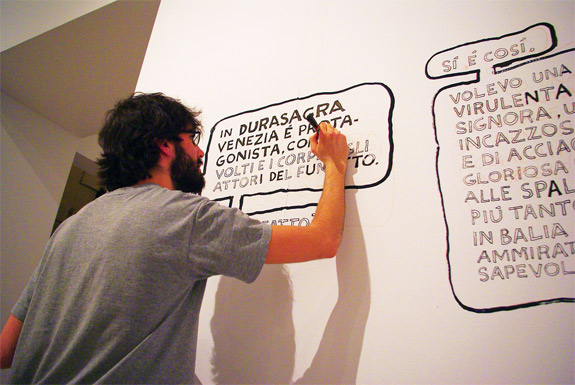 IN DURASAGRA
VENEZIA É PROTA-
GONISTA, CON
VOLTI E I CORPI GLI
ATTORI DEL FUMETTO.
SÍ É COSÍ.
VOLEVO UNA
VIRULENTA
SIGNORA, U
INCAZZOS
E DI ACCIA
GLORIOSA
ALLE SPAL
PIÚ TANTO
IN BALIA
AMMIRAT
SAPEVOL